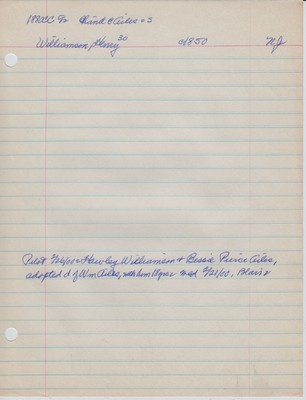 1880C Pa
Williamson, Henry 30 c1850 NJ
Pilot 2/26/00 Hawley Williamson & Bessie Pierce Ailes,
adopted d of Wm Ailes, with him 18 yrs md 2/21/00, Blairs